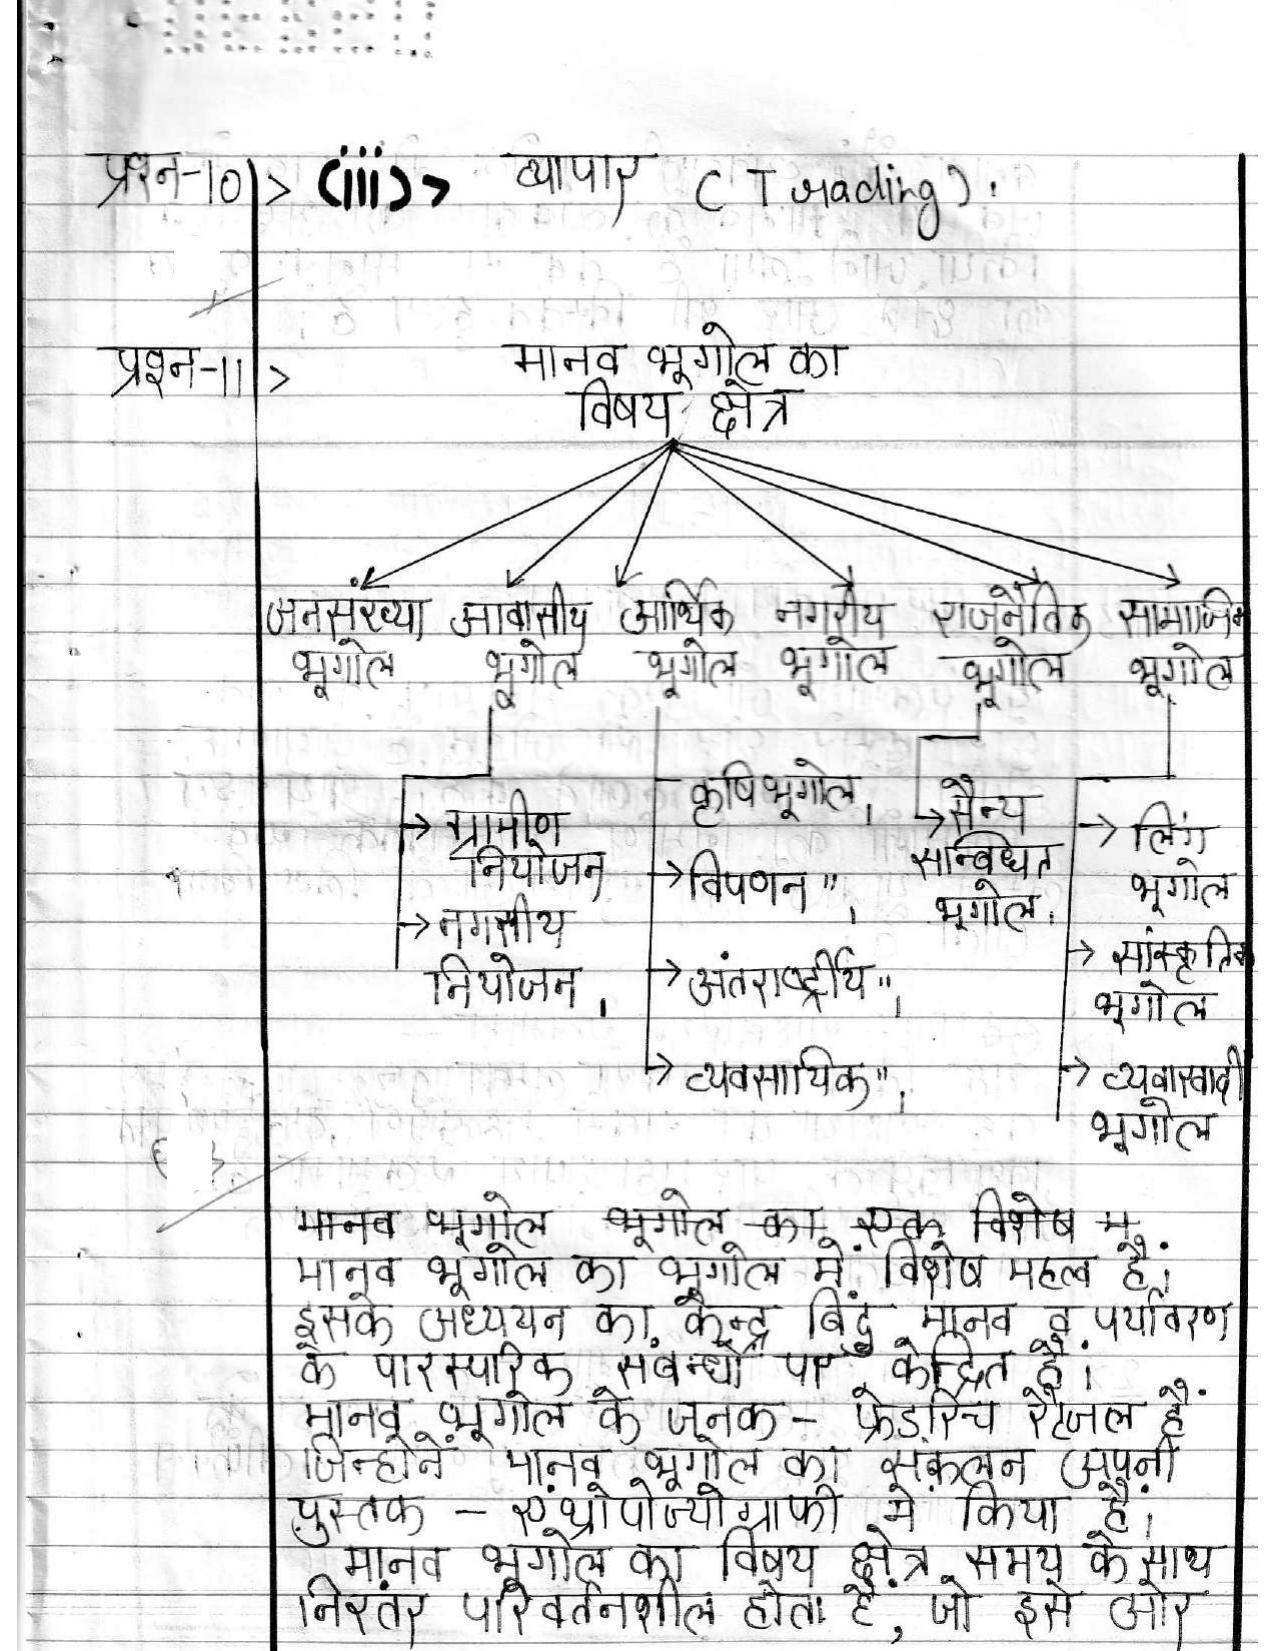 प्रश्न-10> (iii)> व्यापार (Trading).
प्रश्न-11> मानव भूगोल का
विषय क्षेत्र
जनसंख्या आवासीय आर्थिक नगरीय राजनैतिक सामाजिक
भूगोल भूगोल भूगोल भूगोल भूगोल भूगोल
→ ग्रामीण
नियोजन
→ नगरीय
नियोजन,
कृषि भूगोल,
→ विपणन ",
→ अंतराष्ट्रीय ",
→ व्यवसायिक ",
→ सैन्य
सम्बिधित
भूगोल,
→ लिंग
भूगोल
→ सांस्कृतिक
भूगोल
→ व्यवास्वादी
भूगोल
मानव भूगोल भूगोल का एक विशेष म
मानव भूगोल का भूगोल में विशेष महत्व है।
इसके अध्ययन का केन्द्र बिंदु मानव व पर्यावरण
के पारस्पारिक संबन्धों पर केंद्रित है।
मानव भूगोल के जनक - फ्रेडरिच रैटजल हैं
जिन्होंने मानव भूगोल का संकलन अपनी
पुस्तक - एंथ्रोपोज्योग्राफी में किया है।
मानव भूगोल का विषय क्षेत्र समय के साथ
निरंतर परिवर्तनशील होता है, जो इसे ओर